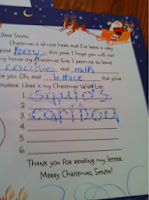 Dear Santa,
Christmas is almost here and I've been a very
good boy this year. I hope you will visit
my house on Christmas Eve. I promise to leave
cookies and milk
for you. Oh, and lettuce for your
reindeer. Here is my Christmas Wish List
1. squids
2.
3. caribou
4.
5.
6.
Thank you for reading my letter.
Merry Christmas, Santa!